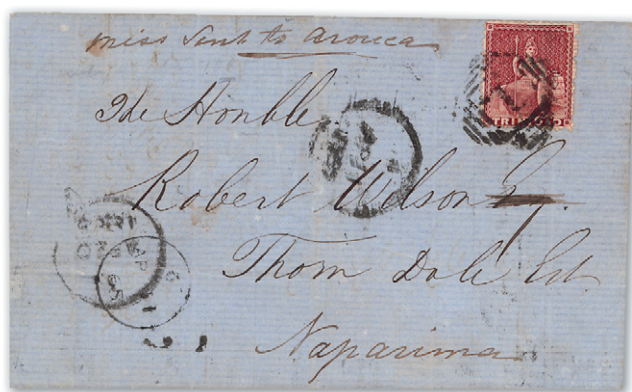 miss Sent to Arouca
The Honble
Robert Wilson Esq.
Thorn Dale Est.
Naparima
TRINIDAD